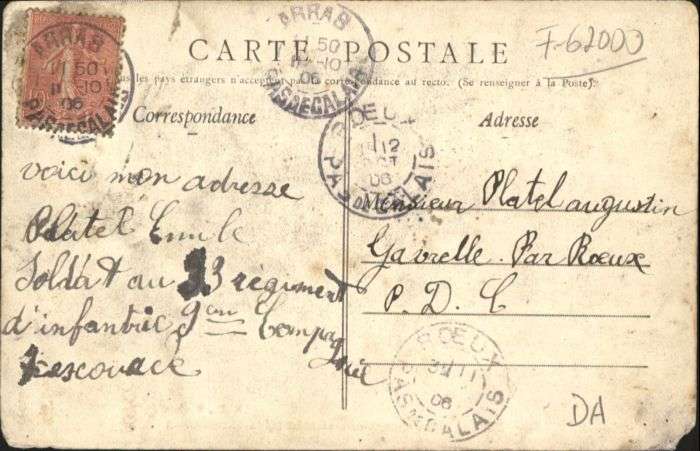 CARTE POSTALE
F-62000
Tous les pays étrangers n'acceptent pas la correspondance au recto. (Se renseigner à la Poste).
Correspondance
Adresse
ARRAS
11 50
11-10
06
PAS DE CALAIS
ARRAS
11 50
11-10
06
PAS DE CALAIS
ROEUX
12
OCT
06
PAS DE CALAIS
voici mon adresse
Platel Emile
Soldat au 33 régiment
d'infantrie 9em Compa
gnie
escouade
Monsieur Platel augustin
Gavrelle Par Rœux
P. D. C
ROEUX
11
06
PAS DE CALAIS
DA